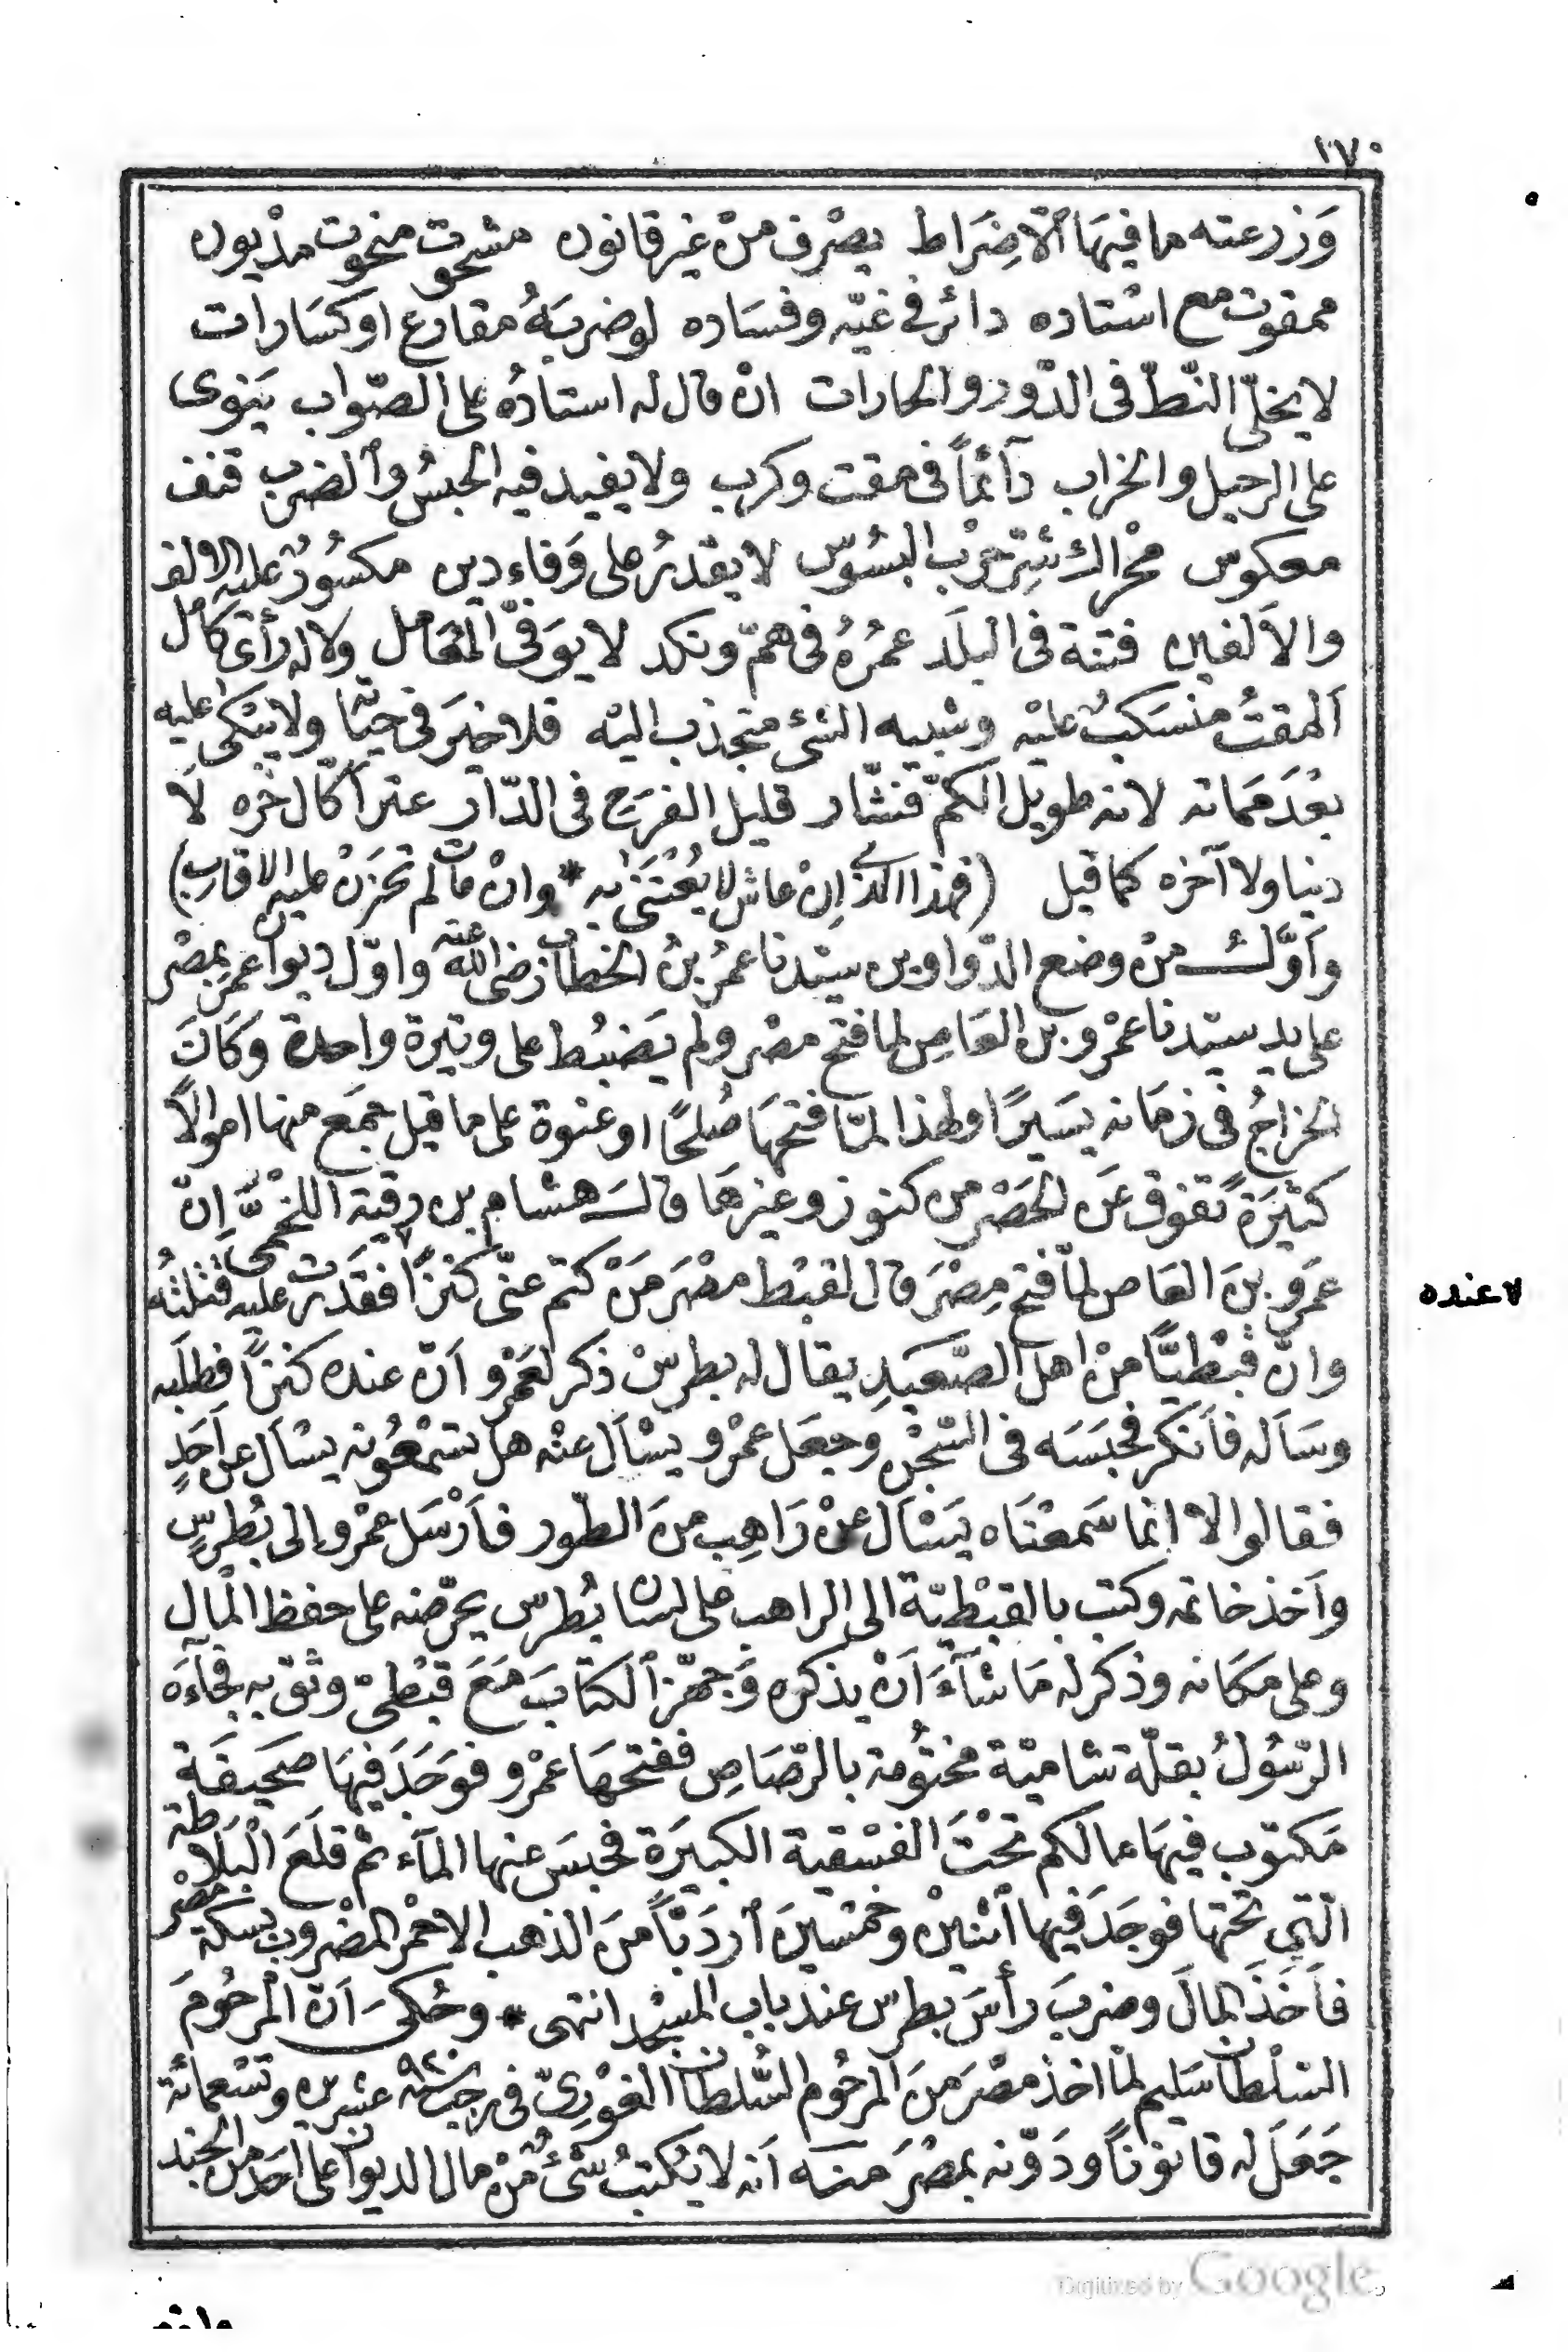 ١٧٠
وَزرعته ما فيهَا اَلّا ضِرَاط يصْرف منْ غيرقانون مشحوت منحوت مذْيون
ممقوت مع استاده دائر فى غيّه وفسَاده لوضربَهُ مقارع اوكسَارات
لا يخلّى النّطّ فى الدّورو والحارات انْ قال له استادُه على الصّواب يَنوى
على الرحيل والخراب دآئماً فى مقت وكرب ولا يفيد فيه الحبسُ وٱلضرب قنف
معكوس محْراك شِرّحرْب البسُوس لا يقْدرُ على وَفاء دين مكسُورٌ عليه الالف
والاَلفين فتنة فى البلَد عمُرُهُ فى همّ ونكد لا يوَفىّ اَلمعَامل ولا له رأى كامل
اَلمقتُ منسَكبٌ عليْه وشبيه الشئ منجذب اليْه فلا خيرَ فى حيَاته ولا يبْكى عليه
بعْدَ مَماته لانه طويل الكمّ فنشَّار قليل الفرَج فى الدّار عنز اكّال خَره لاَ
دنيا ولا آخره كما قيل (فهذا الذى اِنْ عاش لا يُعْتَنَى به * وانْ مات لم تحْزَنْ عليه الاقارب)
وأوَّلُ منْ وضع الدّواوين سيّدنا عمرُ بنُ الخطاب رضى الله عنه واوّل ديوان عمر بمصْر
على يد سيّدنا عمْرو بن العَاصِ لما فتح مصْر ولم يَضْبُط على وتيرة واحدة وكَانَ
الخراجُ فى زمَانه يسَيرًا ولهذا لمّا فتحهَا صُلحًا او عنوة على ما قيل جمَع منها اموالاً
كثيرَةً تفوق عَن الحَصْر من كنوز وغيرهَا قال هشام بن رقيّة اللخمىّ اِنّ
عمَرو بنَ العَاص لمّا فتح مِصْرَ قال لقبْط مصْرَ مَنْ كتم عنّى كَنزًا فقدَرت عليه قتلتُه
لا عنده
وانّ قبْطيًّا منْ اهل الصَّعيدِ يقال له بطرسْ ذكر لعَمْرو اَنّ عنده كنزاً فطلَبه
وسَأله فأنكر فحبَسَه فى السّجْن وجعَل عمْرو يسْأل عنْه هل تسْمعُونه يسْأل عن اَحَدٍ
فقالوا لا انما سَمعْنَاه يَسْأل عنْ رَاهِب منَ الطّور فاَرْسَل عمْرو الى بُطرسٍ
واَخذ خاتمه وكتب بالقبْطيّة الى الراهب على لسان بُطرس يحرّضه على حفظ المْال
وعلى مكَانه وذكر له مَا شآءَ اَنْ يذكره وَجهّز ٱلكتابَ مَعَ قبْطىّ وثق به فجآءَه
الرّسُولُ بقلّة شاميّة مختُومة بالرّصَاصِ ففتحهَا عمْرو فوَجَدَ فيهَا صَحيفَة
مَكتوب فيهَا مالكم تحْتَ الفسْقية الكبيرَة فحبَس عنها المآء ثم قلَعَ الْبَلاطة
الّتي تحْتها فوجَدَ فيها ٱثنينْ وخمْسينَ ٱردَبًّا منَ الذهب الاحمْر المضْروب بسكة مصْر
فاَخَذَ المالَ وضربَ رأسَ بطرس عند باب المسْجد انتهى * وحُكىَ اَنّ الْمرحُومَ
السّلْطان سَليم لمّا اخذ مصْرَ منَ المرحُوم السُّلطان الغوْرىّ فى رجب سنة ٩٢٠ عشرين وتسْعمائة
جَعَلَ له قانونًا ودَوّنه بمصْرَ منه اَنه لا يكْتبُ شئٌ منْ مال الديوان على اَحَد من الجند
وانه
Digitized by Google